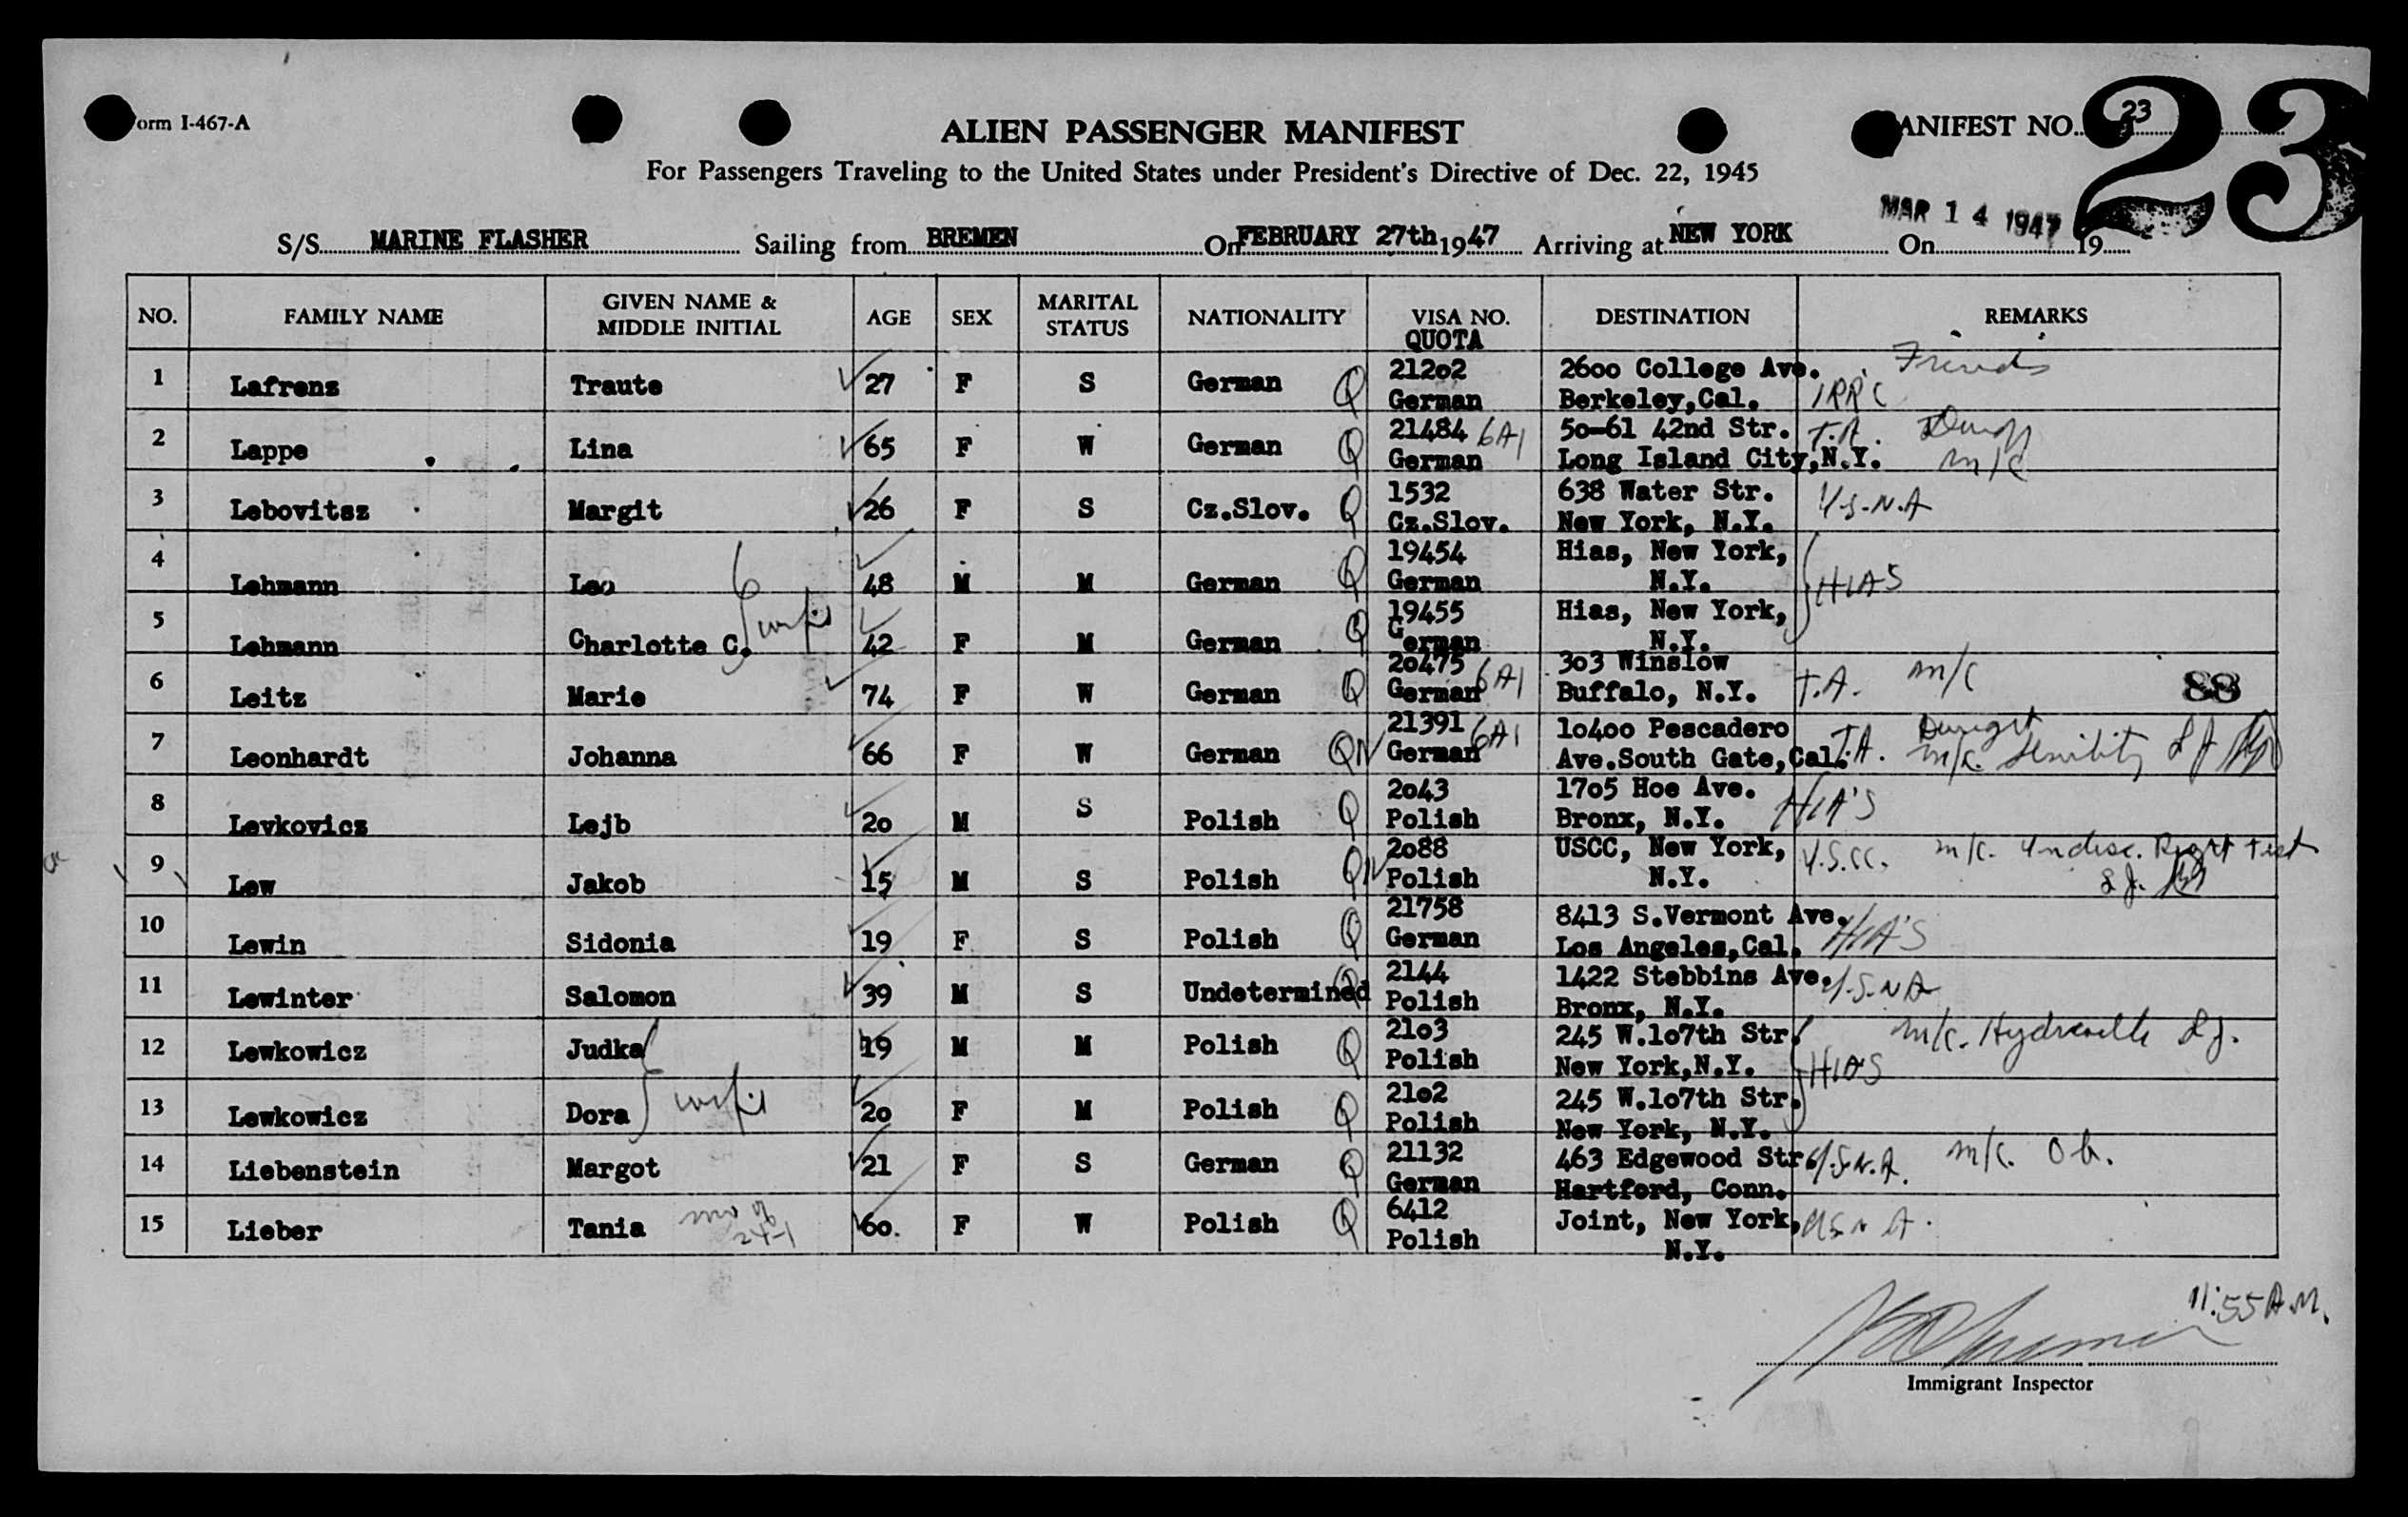 Form I-467-A
ALIEN PASSENGER MANIFEST
MANIFEST NO. 23
23
For Passengers Traveling to the United States under President's Directive of Dec. 22, 1945
MAR 14 1947
S/S MARINE FLASHER Sailing from BREMEN On FEBRUARY 27th 1947 Arriving at NEW YORK On 19
NO. FAMILY NAME GIVEN NAME & MIDDLE INITIAL AGE SEX MARITAL STATUS NATIONALITY VISA NO. QUOTA DESTINATION REMARKS
1 Lafrenz Traute 27 F S German Q 21202 German 2600 College Ave. Berkeley,Cal. Friends
2 Lappe Lina 65 F W German Q 21484 6A1 German 50-61 42nd Str. Long Island City,N.Y. T.A. m/c
3 Lebovitsz Margit 26 F S Cz.Slov. Q 1532 Cz.Slov. 638 Water Str. New York, N.Y. U.S.N.A
4 Lehmann Leo 48 M M German Q 19454 German Hias, New York, N.Y. HIAS
5 Lehmann Charlotte C. wife 42 F M German Q 19455 German Hias, New York, N.Y.
6 Leitz Marie 74 F W German Q 20475 6A1 German 303 Winslow Buffalo, N.Y. T.A. m/c 88
7 Leonhardt Johanna 66 F W German QIV 21391 6A1 German 10400 Pescadero Ave.South Gate,Cal. T.A. m/c. Senility
8 Levkovicz Lejb 20 M S Polish Q 2043 Polish 1705 Hoe Ave. Bronx, N.Y. HIA'S
9 Lew Jakob 15 M S Polish QIV 2088 Polish USCC, New York, N.Y. U.S.CC. m/c. Undesc. Right Test
10 Lewin Sidonia 19 F S Polish Q 21758 German 8413 S.Vermont Ave. Los Angeles,Cal. HIA'S
11 Lewinter Salomon 39 M S Undetermined Q 2144 Polish 1422 Stebbins Ave. Bronx, N.Y. U.S.N.A
12 Lewkowicz Judka 19 M M Polish Q 2103 Polish 245 W.107th Str. New York,N.Y. HIAS m/c. Hydrocele
13 Lewkowicz Dora wife 20 F M Polish Q 2102 Polish 245 W.107th Str. New York, N.Y.
14 Liebenstein Margot 21 F S German Q 21132 German 463 Edgewood Str. Hartford, Conn. U.S.N.A. m/c. Ob.
15 Lieber Tania mo of 24-1 60. F W Polish Q 6412 Polish Joint, New York, N.Y. U.S.N.A.
11:55 A.M.
Immigrant Inspector